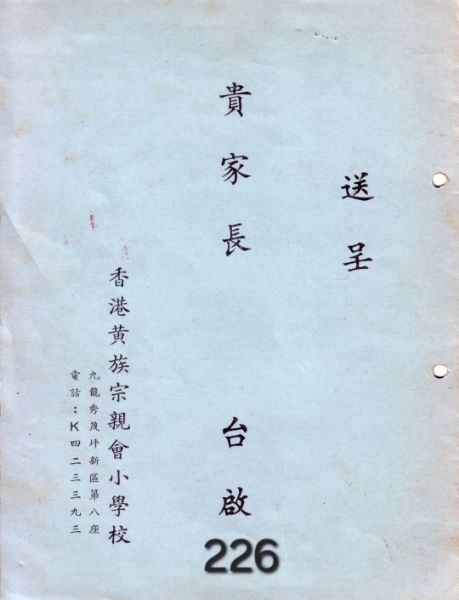 送呈
貴家長 台啟
香港黃族宗親會小學校
九龍秀茂坪新區第八座
電話：K四二三三九三
226